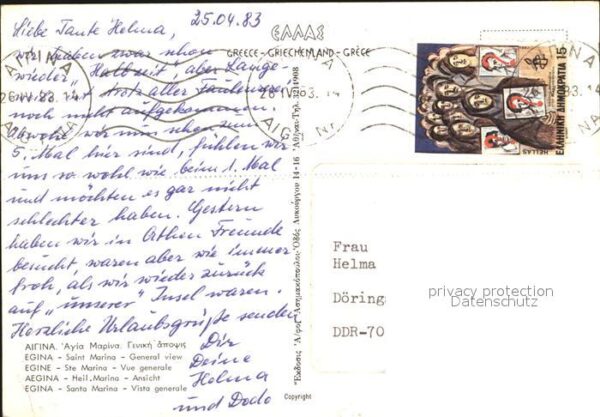 25.04.83
Liebe Tante Helma,
wir haben zwar schon
wieder "Halbzeit", aber Lange-
weile ist trotz aller Faulenzerei
noch nicht aufgekommen.
Obwohl wir nun schon zum
5. Mal hier sind, fühlen wir
uns so wohl wie beim 1. Mal
und möchten es gar nicht
schlechter haben. Gestern
haben wir in Athen Freunde
besucht, waren aber wie immer
froh, als wir wieder zurück
auf "unserer" Insel waren.
Herzliche Urlaubsgrüße senden
Dir
Deine
Helma
und Dodo
ΑΙΓΙΝΑ. Ἁγία Μαρίνα. Γενική ἄποψις
EGINA - Saint Marina - General view
EGINE - Ste Marina - Vue generale
AEGINA - Heil. Marina - Ansicht
EGINA - Santa Marina - Vista generale
ΕΛΛΑΣ
GREECE - GRIECHENLAND - GRÈCE
Copyright
26 IV 83. 14
AIGINA
ΕΛΛΗΝΙΚΗ ΔΗΜΟΚΡΑΤΙΑ 15
HELLAS
Frau
Helma
Döring
DDR-70
privacy protection
Datenschutz